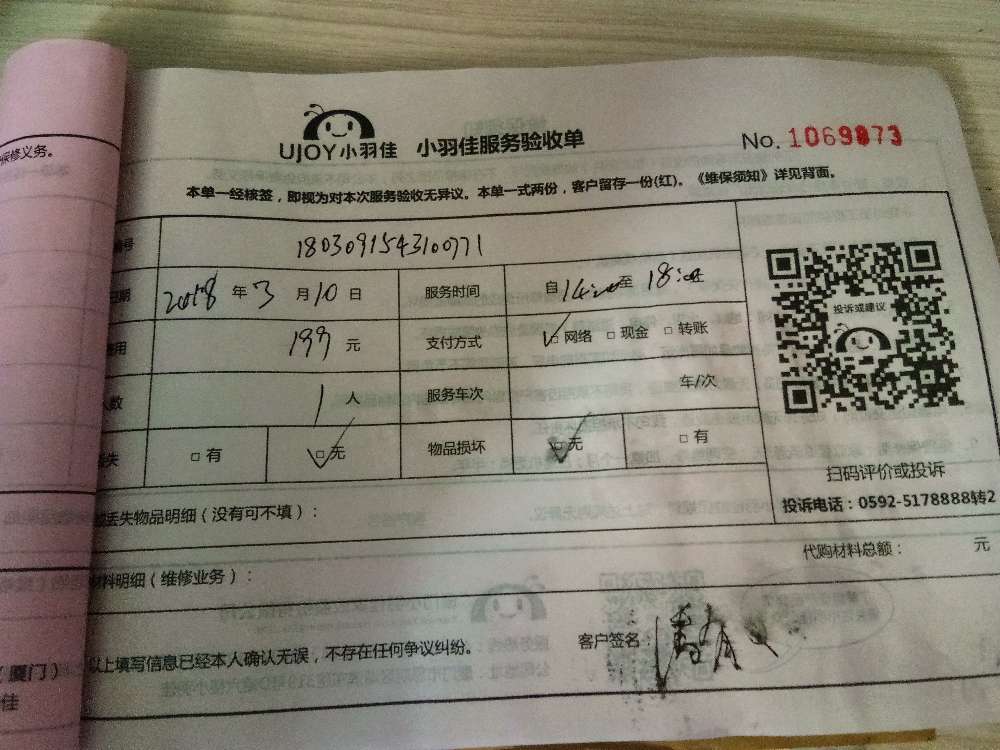 保修义务。
UJOY小羽佳 小羽佳服务验收单 No. 1069873
本单一经核签，即视为对本次服务验收无异议。本单一式两份，客户留存一份(红)。《维保须知》详见背面。
号 180309154310071
期 2018 年 3 月 10 日 服务时间 自 14:00 至 18:00
用 199 元 支付方式 ✓ □ 网络 □ 现金 □ 转账
人数 1 人 服务车次 年/次
失 □ 有 ✓ □ 无 物品损坏 ✓ □ 无 □ 有
投诉或建议
扫码评价或投诉
投诉电话：0592-5178888转2
丢失物品明细（没有可不填）：
代购材料总额： 元
材料明细（维修业务）：
以上填写信息已经本人确认无误，不存在任何争议纠纷。 客户签名：
（厦门）
佳